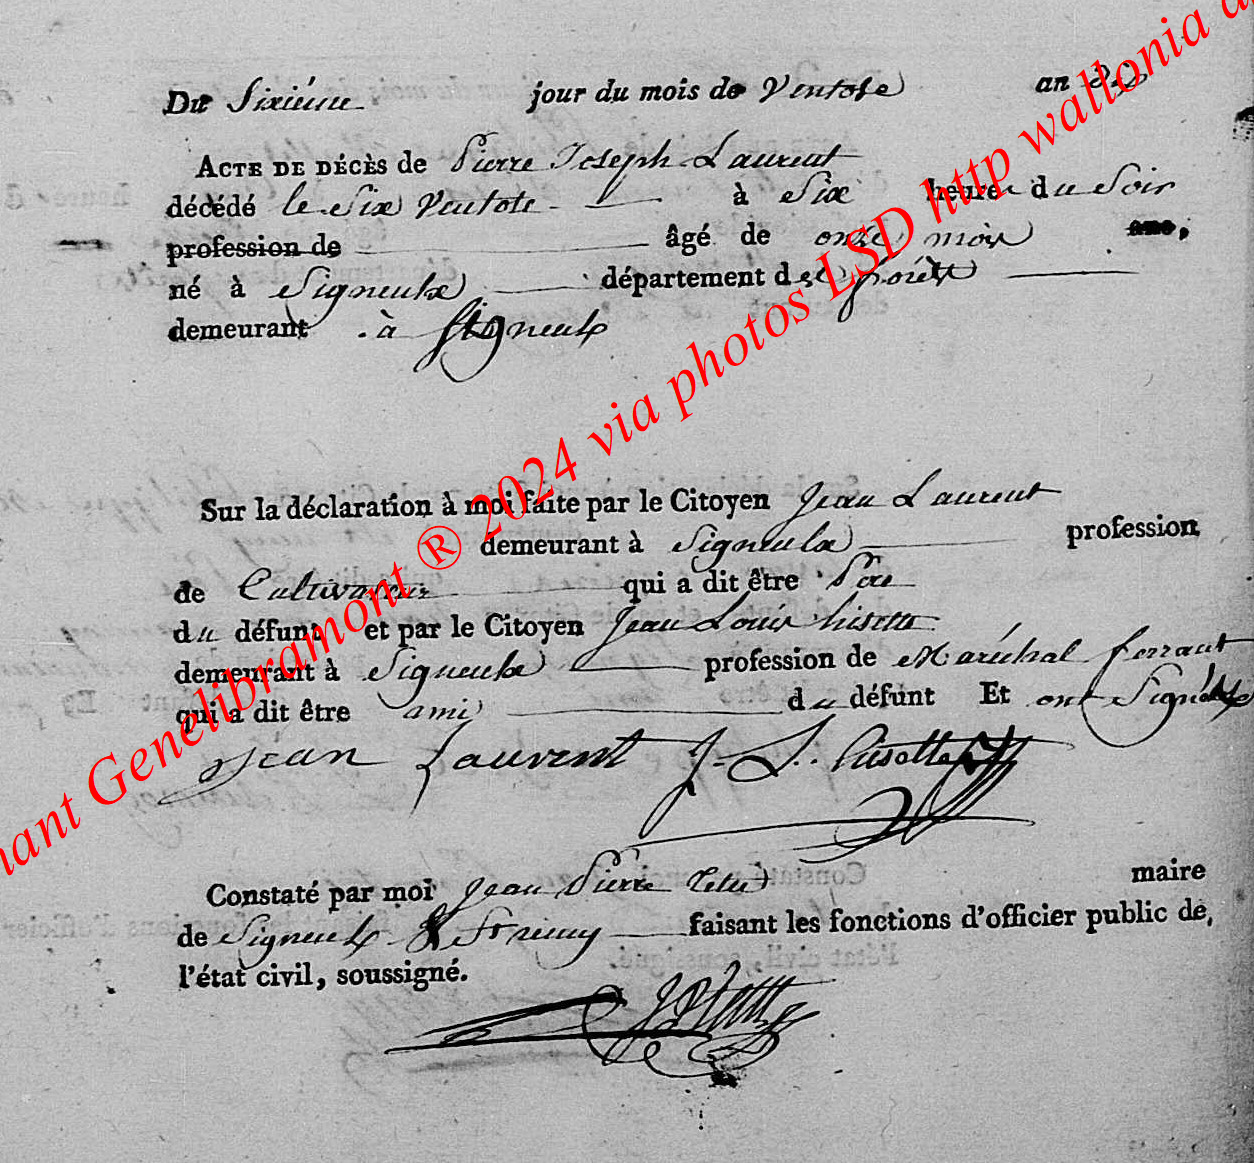 Du Sixiéme jour du mois de Ventose an dix
ACTE DE DÉCÈS de Pierre Joseph Laurent
décédé le Six Ventose à Six heures du Soir
profession de âgé de onze mois ans,
né à Signeulx département des forêts
demeurant à Signeulx
Sur la déclaration à moi faite par le Citoyen Jean Laurent
demeurant à Signeulx profession
de Cultivateur qui a dit être Père
du défunt et par le Citoyen Jean Louis
demeurant à Signeulx profession de Maréchal ferrant
qui a dit être ami du défunt Et ont Signés
jean Laurent J. L.
Constaté par moi Jean Pierre maire
de Signeulx & St remy faisant les fonctions d'officier public de
l'état civil, soussigné.
nant Genelibramont ® 2024 via photos LSD http wallonia